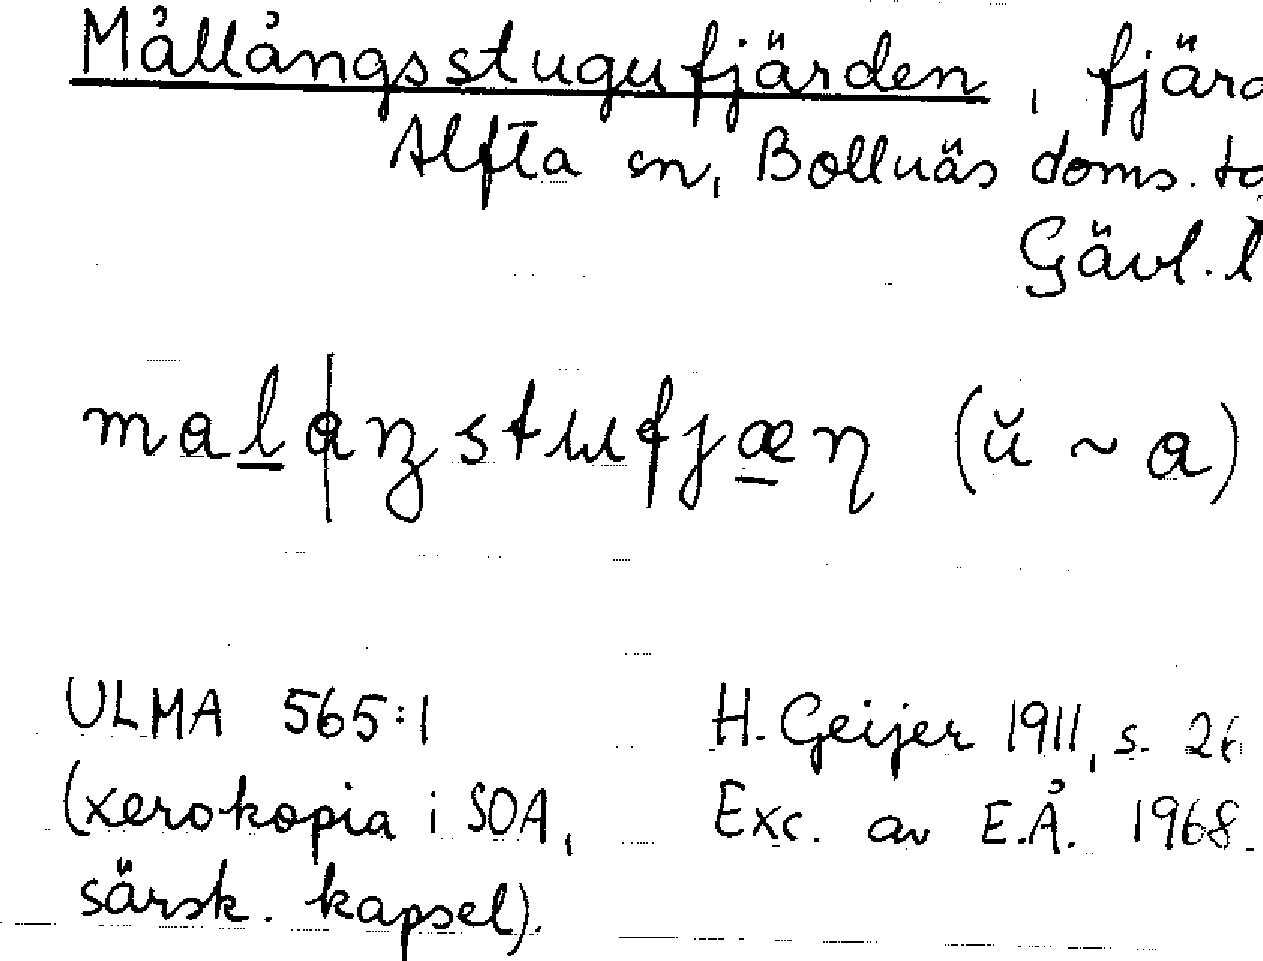 Mållångsstugufjärden, fjärd
Alfta sn, Bollnäs doms. to
Gävl. l
malaŋstufjæn (ŭ ~ a)
ULMA 565:1 H. Geijer 1911, s. 26
(xerokopia i SOA, Exc. av E.Å. 1968.
särsk. kapsel).